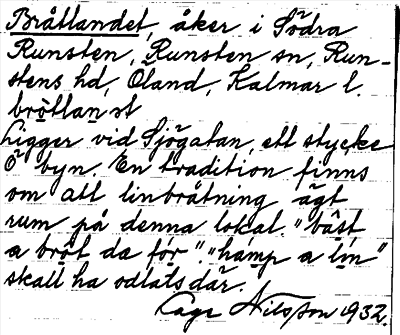 Bråtlandet, åker i Södra
Runsten, Runsten sn, Run-
stens hd, Öland, Kalmar l.
brötlanst
Ligger vid Sjögatan, ett stycke
Ö byn. En tradition finns
om att linbråtning ägt
rum på denna lokal. "bäst
a bröt da för". "hamp a lin"
skall ha odlats där.
Åage Nilsson 1932.